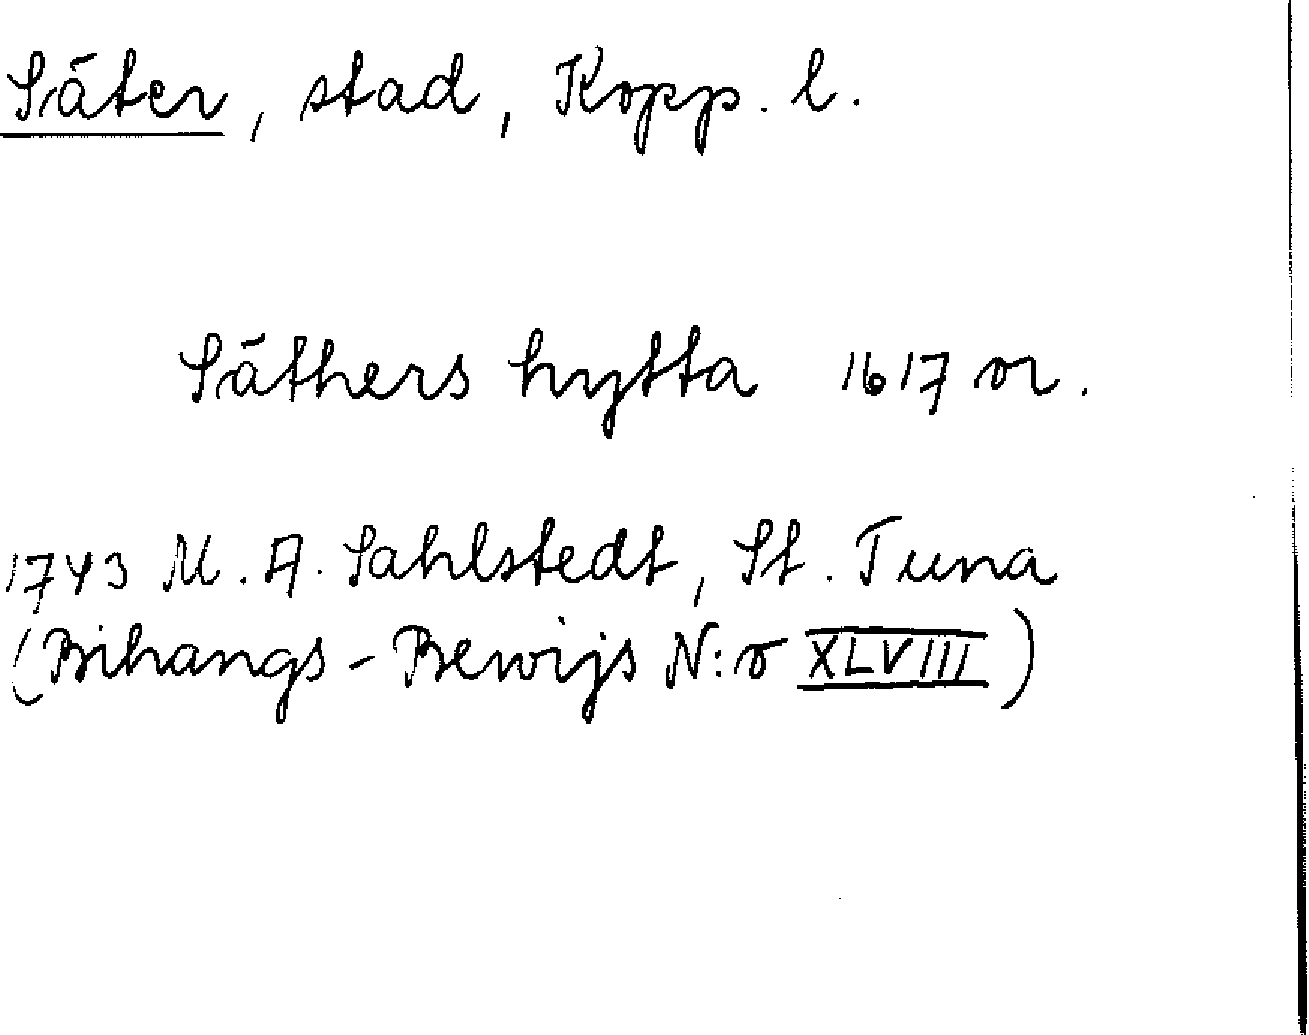 Säter, stad, Kopp. l.
Säthers hytta 1617 or.
1743 M. A. Sahlstedt, St. Tuna
(Bihangs-Bewijs N:o XLVIII)